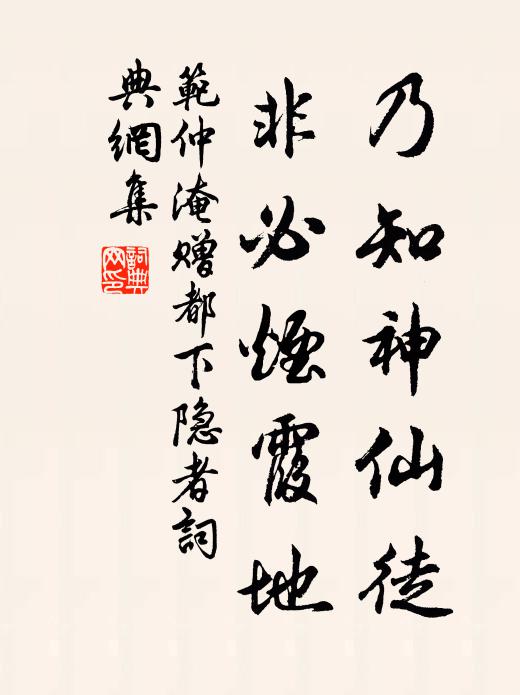 乃知神仙徒
非必煙霞地
範仲淹赠都下隐者詞
典網集
詞典
网印